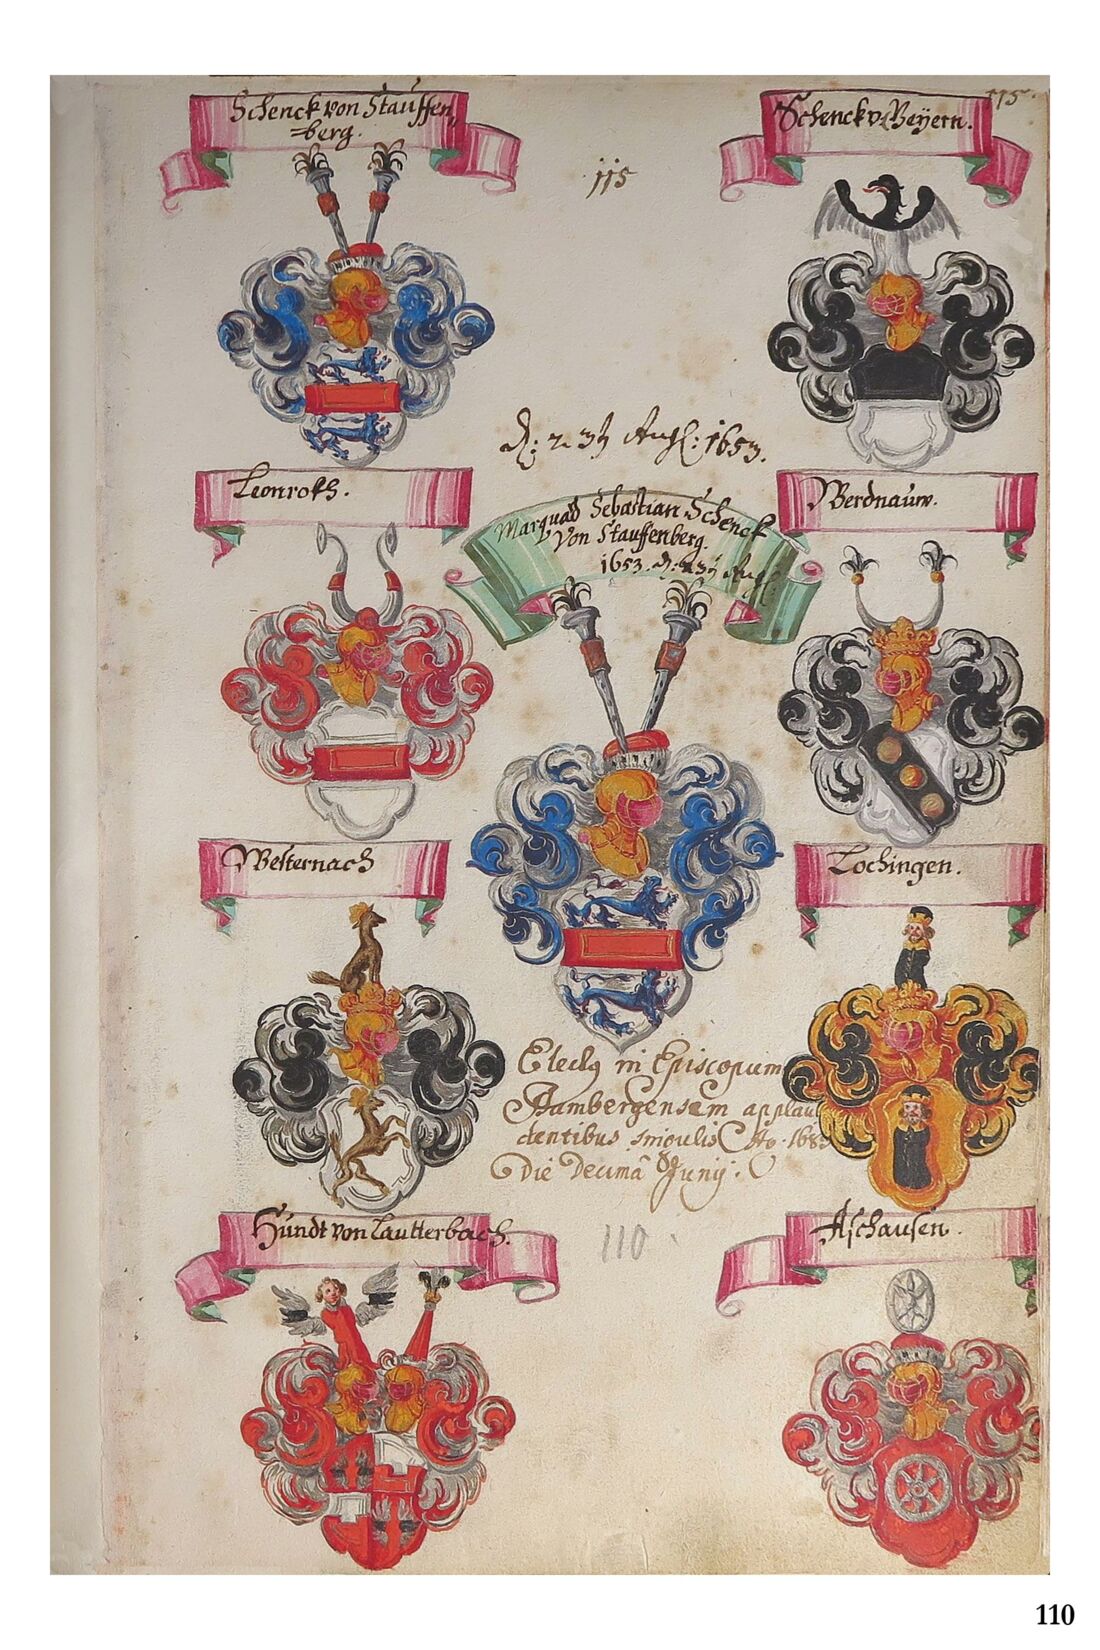 Schenck von Stauffen„
=berg.
115.
Schenck v. Beÿern.
115
d: 23 Aug: 1653.
Leonroth.
Werdnauw.
Marquad Sebastian Schenck
Von Stauffenberg.
1653. d: 23 Aug:
Westernach
Lochingen.
Elect9 in Episcopum
Bambergensem applau
dentibus singulis Ao. 1683
Die Decimâ Junij.
Hundt von Lautterbach.
Aschausen.
110.
110